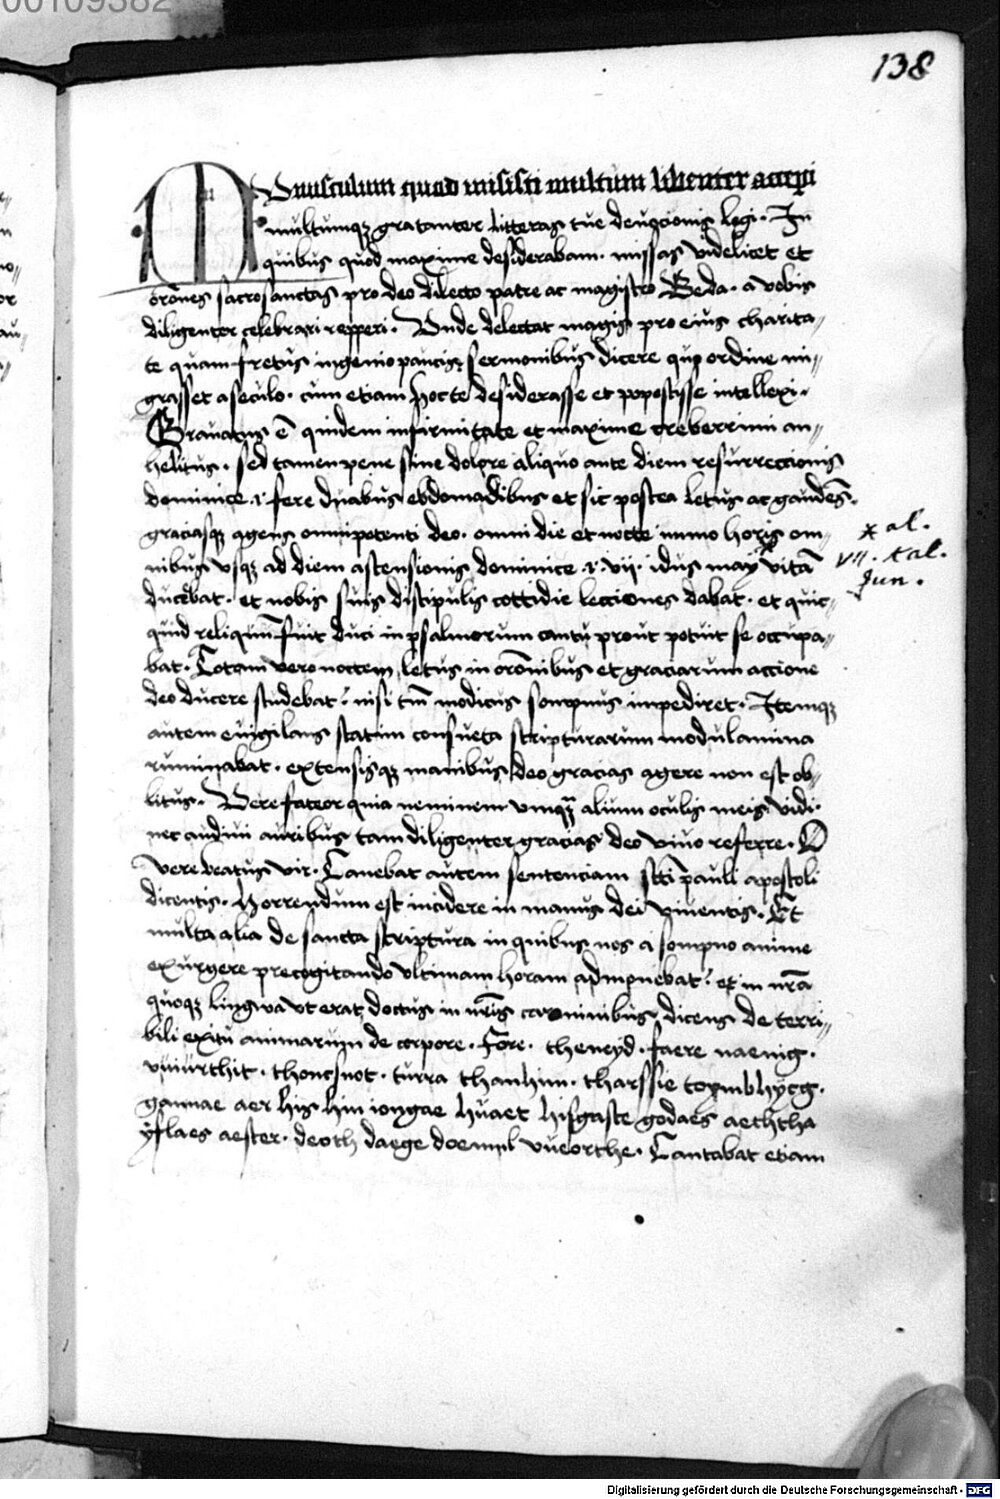 00109382
138
Munusculum quod misisti multum libenter accepi
multumqꝫ gratanter litteras tue deuocionis legi. In
quibus quod maxime desiderabam. missas videlicet et
orōnes sacrosanctas pro deo dilecto patre ac magistro Beda. a vobis
diligenter celebrari repperi. Unde delectat magis pro eius charita〃
te quam fretus ingenio paucis sermonibus dicere quo ordine mi〃
grasset a seculo. cum etiam hoc te desiderasse et poposcisse intellexi.
Grauatus ē quidem infirmitate et maxime creberrimi an〃
helitus. sed tamen pene sine dolore aliquo ante diem resurreccionis
dominice .i. fere duabus ebdomadibus et sic postea letus ac gaudēs.
graciasqꝫ agens omnipotenti deo. omni die et nocte immo horis om〃
nibus vsqꝫ ad diem ascensionis dominice .i. vii. idus may vitā
x al.
vii. kal.
Jun.
ducebat. et nobis suis discipulis cottidie lecciones dabat. et quic〃
quid reliquū fuit diei in psalmorum cantu prout potuit se occupa〃
bat. Totam vero noctem letus in orōnibus et graciarum accione
deo ducere studebat. nisi tm̄ modicus sompnus impediret. Itemqꝫ
autem euigilans statim consueta scripturarum modulamina
ruminabat. extensisqꝫ manibus deo gracias agere non est ob〃
litus. Vere fateor quia neminem vmqꝫ̄ alium oculis meis vidi.
nec audiui auribus tam diligenter gracias deo viuo referre. O
vere beatus vir. Canebat autem sentenciam scti pauli apostoli
dicentis. Horrendum est incidere in manus dei viuentis. Et
multa alia de sancta scriptura in quibus nos a sompno anime
exurgere precogitando vltimam horam admonebat. et in nrā
quoqꝫ lingwa vt erat doctus in nr̄is carminibus dicens de terri〃
bili exitu animarum de corpore. Fore. theneyd. faere naenig.
vuiurthit. thoncsnot. turra than him. tharssie toymbhycg.
gannae aer his hin iongae huaet hisgaste godaes aeththa
yflaes aester. deoth daege doemnl vueorthe. Cantabat etiam
Digitalisierung gefördert durch die Deutsche Forschungsgemeinschaft - DFG